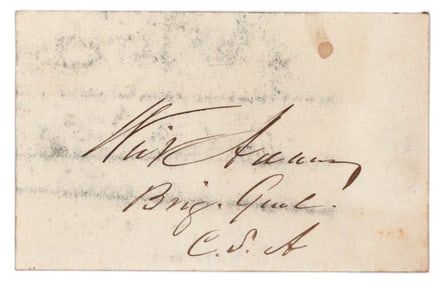 Wirt Adams
Brig. Genl.
C. S. A